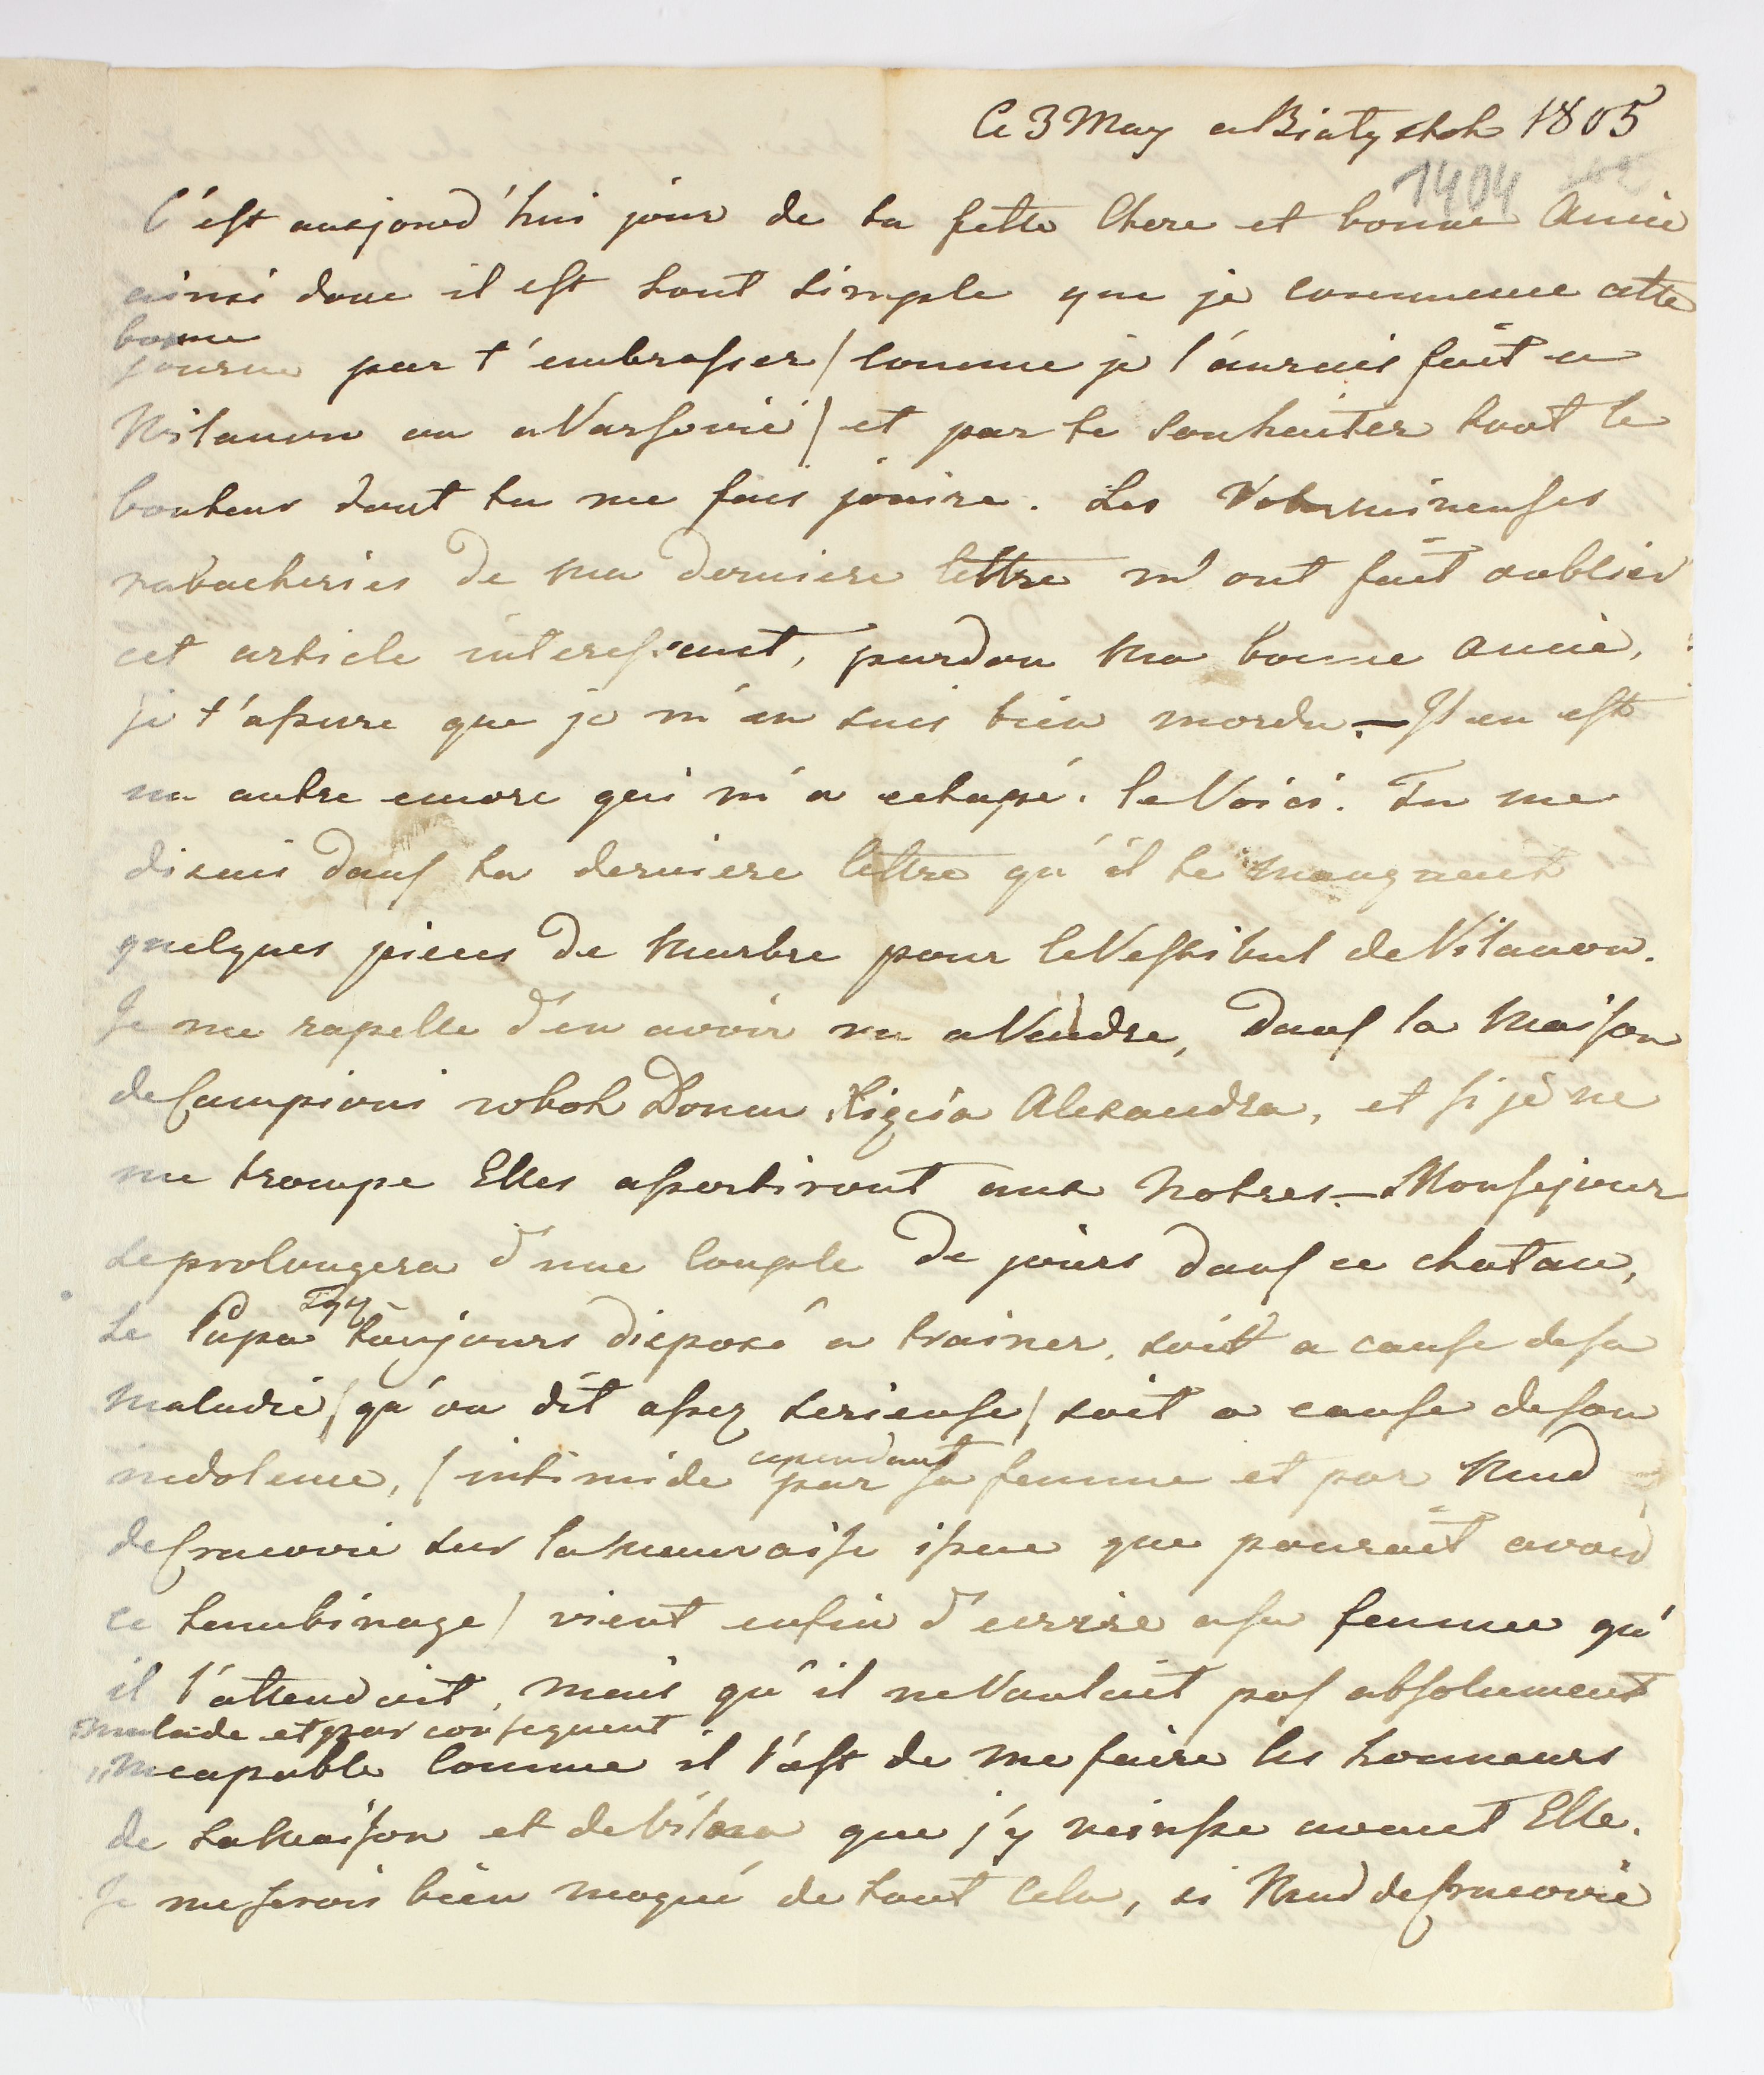 Ce 3 May a Biatystok 1805
1404
C'est aujourd'hui jour de ta fette Chere et bonne Amie
ainsi donc il est tout simple que je commence cette
bonne
journe par t'embrasser / comme je l'aurais fait a
Wilanow ou a Varsovie / et par te souhaiter tout le
bonheur dont tu me fais jouire. Les Volumineuses
rabacheries de ma derniere lettre m'ont fait oublier
cet article interessant, pardon ma bonne amie,
je t'assure que je m'en suis bien mordu. — Il en est
un autre encore qui m'a echapé. le Voici. Tu me
disais dans ta derniere lettre qu'il te manquait
quelques pieces de marbre pour le Vestibul de Vilanow.
Je me rapelle d'en avoir vu a Vendre, dans la Maison
de Campioni Domu Xigcia Alexandra, et si je ne
me trompe Elles assortiront aux notres. — Mon sejour
se prolongera d'une couple de jours dans ce chatau,
Le Papa Tyz toujours disposé a trainer, soit a cause de sa
maladie / qu'on dit assez serieuse / soit a cause de son
indolence, / intimide cependant par sa femme et par Mad
de Cracovie sur la mauvaise issue que pourait avoir
ce lambinage / vient enfin d'ecrire a sa femme qu'
il l'attendait, mais qu'il ne Voulait pas absolument
malade et par consequent
incapable comme il l'est de me faire les honneurs
de sa maison et de Vilna que j'y vinsse avant Elle.
Je me serois bien moqué de tout Cela, si Mad de Cracovie